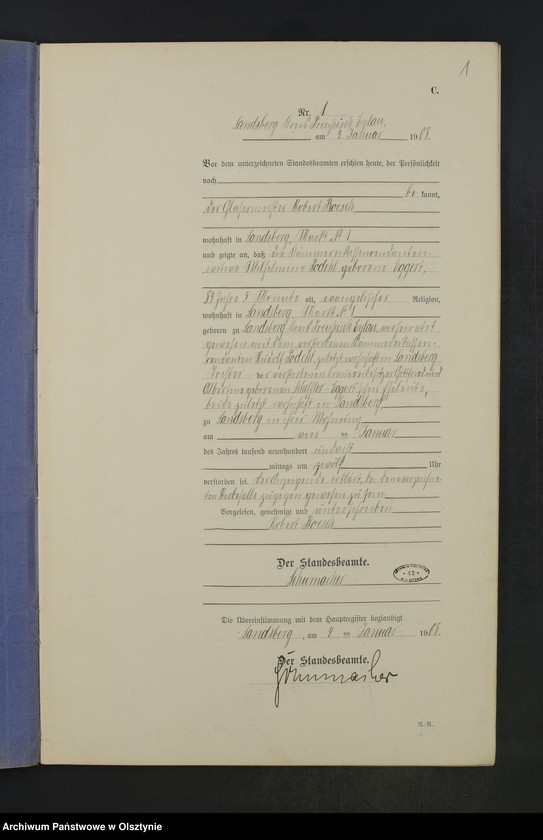 1
C.
Nr. 1
Landsberg Kreis Preußisch Eylau,
am 4. Januar 1908.
Vor dem unterzeichneten Standesbeamten erschien heute, der Persönlichkeit
nach
be kannt,
der Glasermeister Robert Boesch
wohnhaft in Landsberg, Markt № 1
und zeigte an, daß die
witwe Wilhelmine Podehl geborene Eggert,
84 Jahre 3 Monate alt, evangelischer Religion,
wohnhaft in Landsberg Markt № 1
geboren zu Landsberg Kreis Preußisch Eylau, verheiratet
gewesen mit dem verstorbenen Kämmereikassen-
rendanten Rudolf Podehl zuletzt wohnhaft in Landsberg
Tochter der verstorbenen Gottfried und
geborenen Eggert'schen Eheleute,
beide zuletzt wohnhaft in Landsberg
zu Landsberg in ihrer Wohnung
am ten Januar
des Jahres tausend neunhundert und acht
mittags um zwölf Uhr
verstorben sei. Der Anzeigende erklärt, bei dem vorgenann-
ten Sterbefalle zugegen gewesen zu sein
Vorgelesen, genehmigt und unterschrieben
Robert Boesch
Der Standesbeamte.
Schumacher
42
Die Übereinstimmung mit dem Hauptregister beglaubigt
Landsberg, am 4 ten Januar 1908.
Der Standesbeamte.
Schumacher
Archiwum Państwowe w Olsztynie